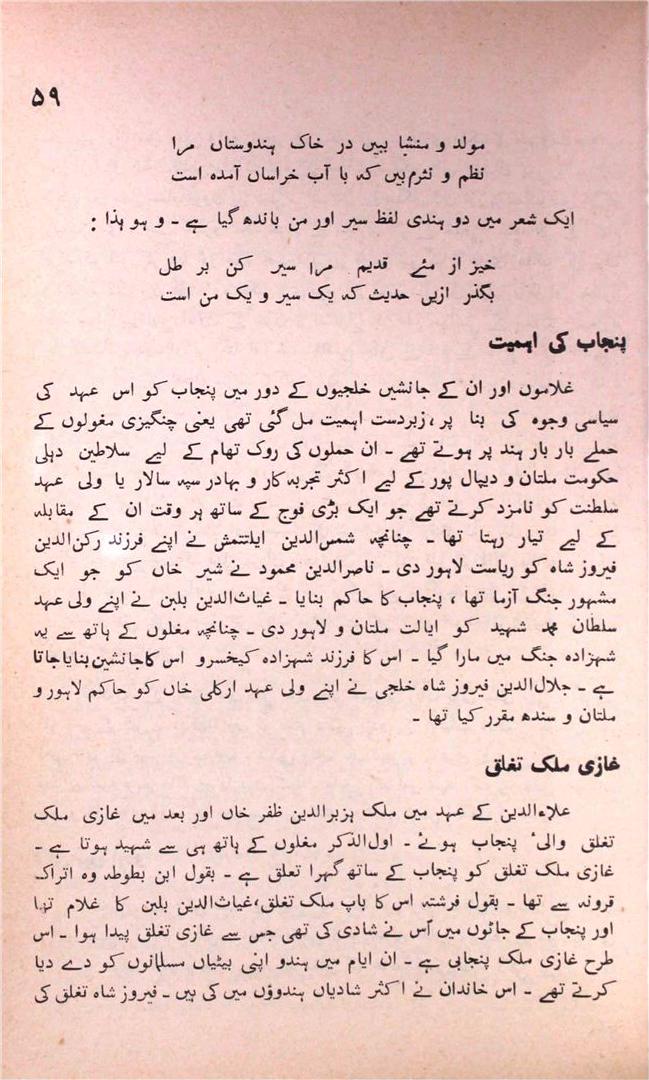 ۵۹
مولد و منشا ببیں در خاک ہندوستاں مرا
نظم و نثرم بیں کہ با آب خراساں آمدہ است
ایک شعر میں دو ہندی لفظ سیر اور من باندھ گیا ہے ۔ و ہو ہذا :
خیز از مئے قدیم مرا سیر کن بر طل
بگذر ازیں حدیث کہ یک سیر و یک من است
پنجاب کی اہمیت
غلاموں اور ان کے جانشیں خلجیوں کے دور میں پنجاب کو اس عہد کی
سیاسی وجوہ کی بنا پر، زبردست اہمیت مل گئی تھی یعنی چنگیزی مغولوں کے
حملے بار بار ہند پر ہوتے تھے ۔ ان حملوں کی روک تھام کے لیے سلاطین دہلی
حکومت ملتان و دیپال پور کے لیے اکثر تجربہ کار و بہادر سپہ سالار یا ولی عہد
سلطنت کو نامزد کرتے تھے جو ایک بڑی فوج کے ساتھ ہر وقت ان کے مقابلہ
کے لیے تیار رہتا تھا ۔ چنانچہ شمس الدین ایلتتمش نے اپنے فرزند رکن الدین
فیروز شاہ کو ریاست لاہور دی ۔ ناصرالدین محمود نے شیر خاں کو جو ایک
مشہور جنگ آزما تھا ، پنجاب کا حاکم بنایا ۔ غیاث الدین بلبن نے اپنے ولی عہد
سلطان محمد شہید کو ایالت ملتان و لاہور دی ۔ چنانچہ مغلوں کے ہاتھ سے یہ
شہزادہ جنگ میں مارا گیا ۔ اس کا فرزند شہزادہ کیخسرو اس کا جانشین بنایا جاتا
ہے ۔ جلال الدین فیروز شاہ خلجی نے اپنے ولی عہد ارکلی خاں کو حاکم لاہور و
ملتان و سندھ مقرر کیا تھا ۔
غازی ملک تغلق
علاءالدین کے عہد میں ملک ہزبرالدین ظفر خاں اور بعد میں غازی ملک
تغلق والیٔ پنجاب ہوئے ۔ اول الذکر مغلوں کے ہاتھ ہی سے شہید ہوتا ہے ۔
غازی ملک تغلق کو پنجاب کے ساتھ گہرا تعلق ہے ۔ بقول ابن بطوطہ وہ اتراک
قرونہ سے تھا ۔ بقول فرشتہ اس کا باپ ملک تغلق، غیاث الدین بلبن کا غلام تھا
اور پنجاب کے جاٹوں میں اُس نے شادی کی تھی جس سے غازی تغلق پیدا ہوا ۔ اس
طرح غازی ملک پنجابی ہے ۔ ان ایام میں ہندو اپنی بیٹیاں مسلمانوں کو دے دیا
کرتے تھے ۔ اس خاندان نے اکثر شادیاں ہندوؤں میں کی ہیں ۔ فیروز شاہ تغلق کی